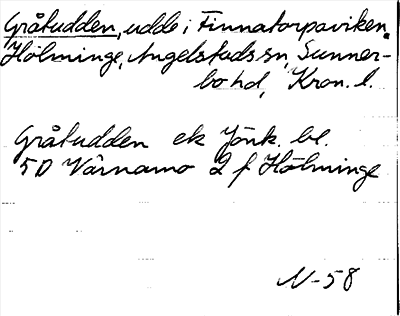 Gråtudden, udde i Finnatorpaviken,
Hölminge, Angelstads sn, Sunner-
bo hd, Kron. l.
Gråtudden ek Jönk. bl.
5D Värnamo 2 f Hölminge
N-58